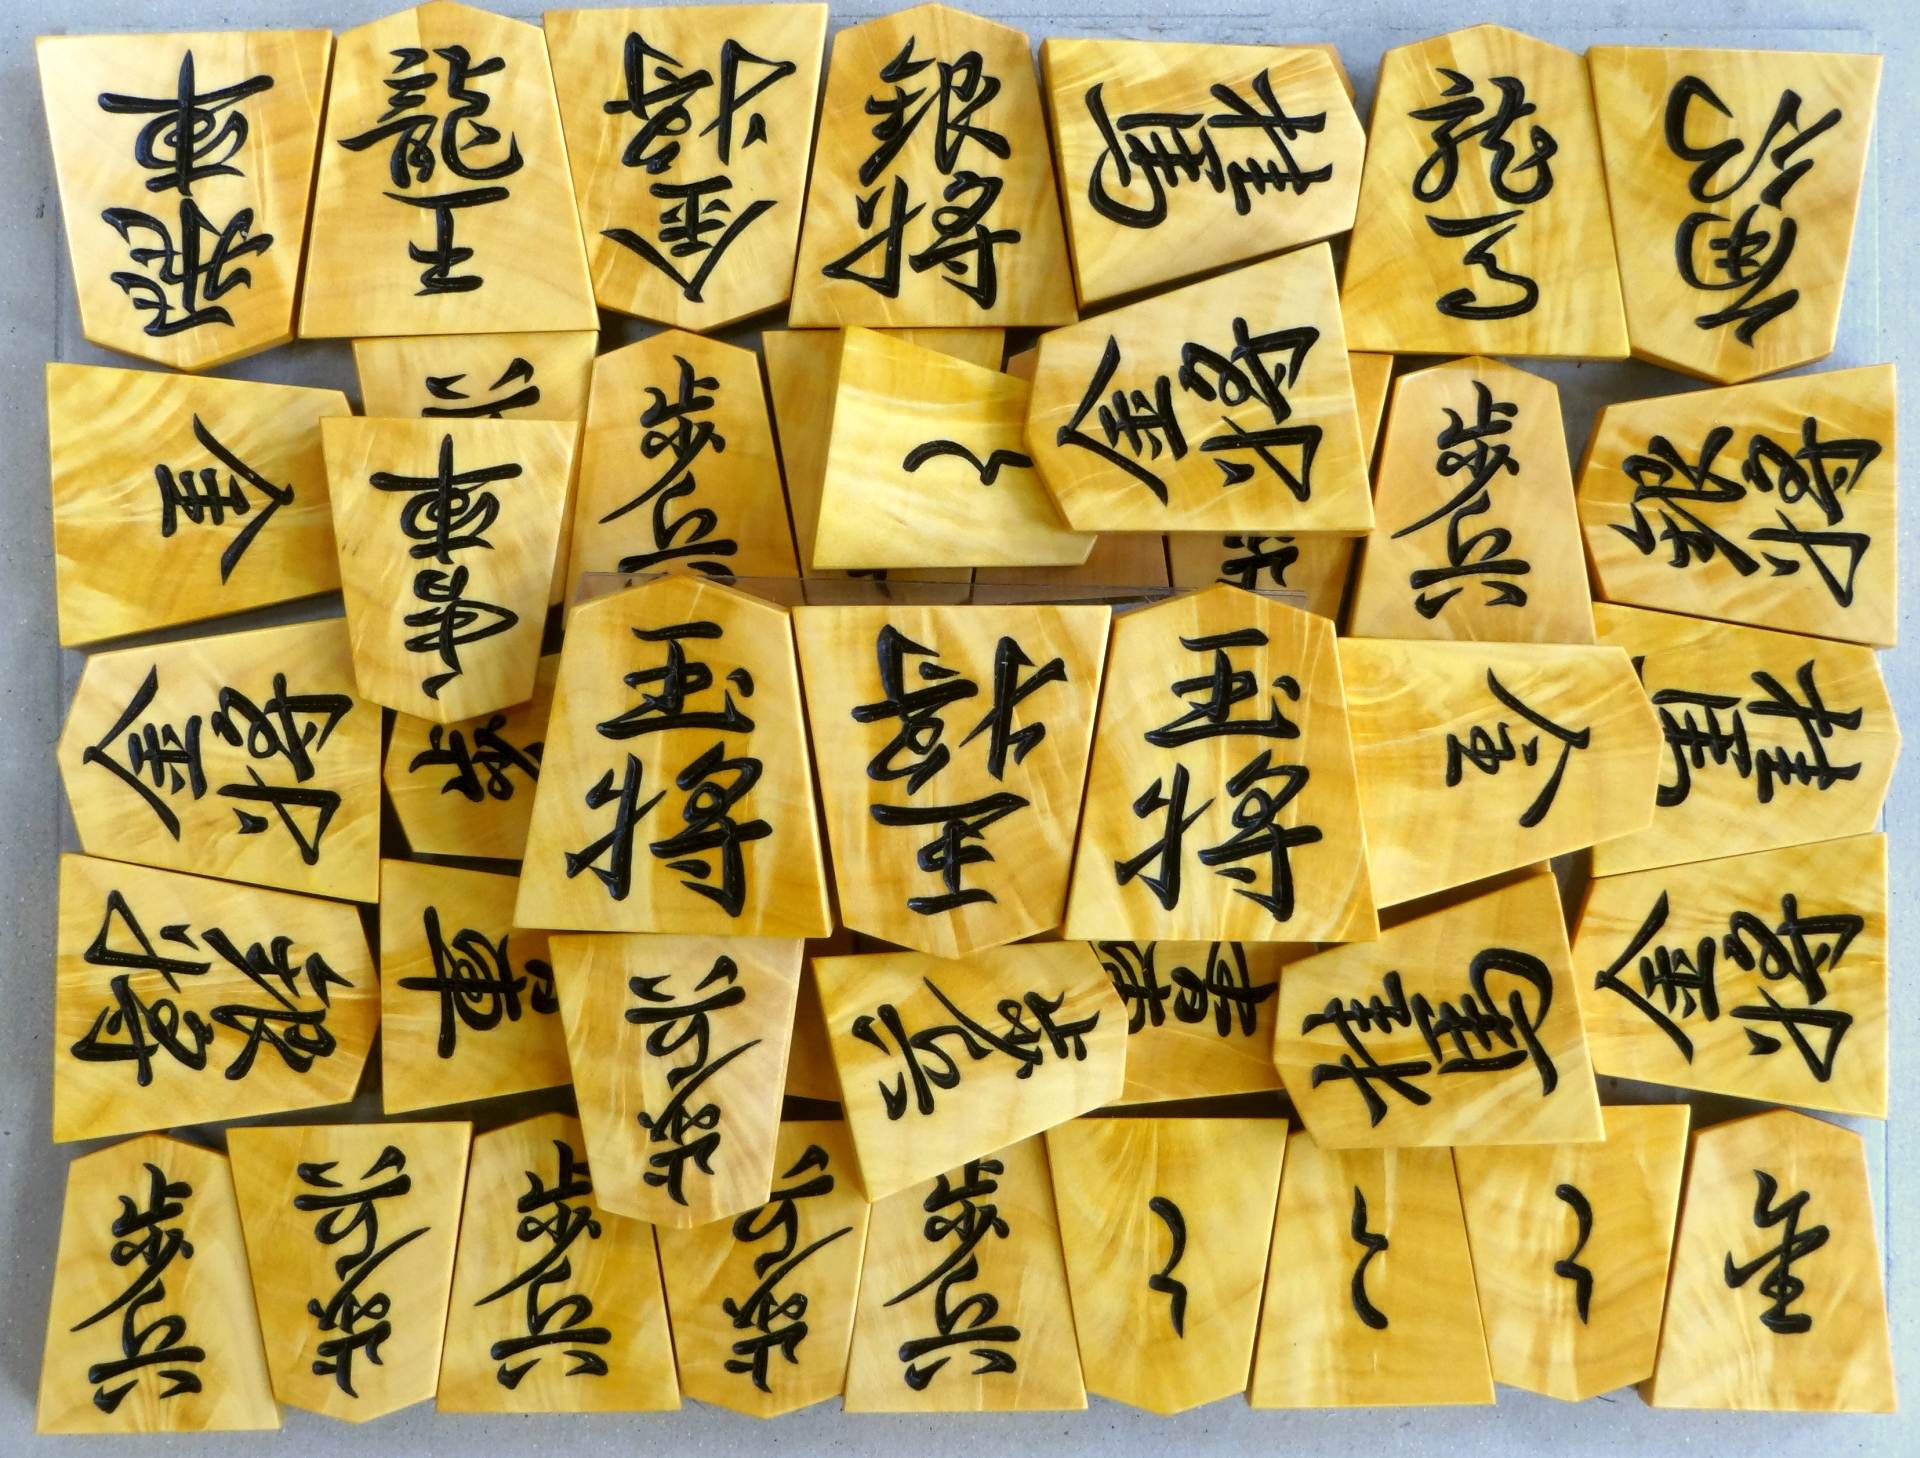 飛車
龍王
金将
銀将
桂馬
龍馬
角行
金将
歩兵
歩兵
銀将
香車
金将
玉将
王将
玉将
桂馬
銀将
歩兵
歩兵
桂馬
金将
歩兵
歩兵
歩兵
歩兵
歩兵
と
と
と
と